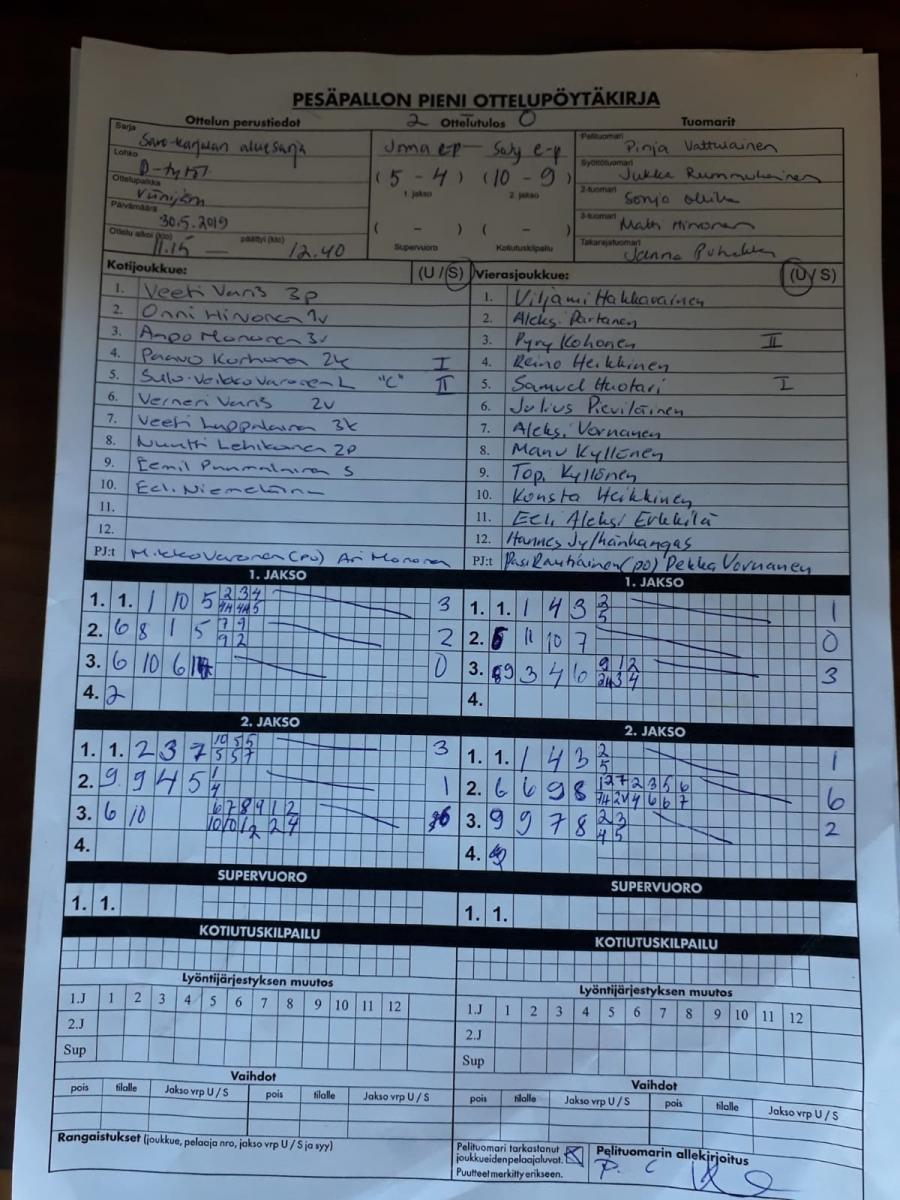 PESÄPALLON PIENI OTTELUPÖYTÄKIRJA
Ottelun perustiedot 2 Ottelutulos 0 Tuomarit
Sarja Savo-karjalan aluesarja
Lohko D-tytöt
Ottelupaikka
Päivämäärä 30.5.2019
Ottelu alkoi (klo) 11.15 päättyi (klo) 12.40
Joma e-p – e-p
(5 - 4) (10 - 9)
1. jakso 2. jakso
( - ) ( - )
Supervuoro Kotiutuskilpailu
Pelituomari Pinja Vattulainen
Syöttötuomari Jukka
2-tuomari Sonja
3-tuomari Matti Hirvonen
Takarajatuomari Janna
Kotijoukkue: (U / S)
1. Veeti Varis 3p
2. Onni Hirvonen 1v
3. Arvo Mononen 3v
4. Paavo Korhonen 2k I
5. Sulo-Veikko Varonen L "C" II
6. Verneri Varis 2v
7. Veeti Luppalainen 3k
8. Nuutti Lehikoinen 2p
9. Eemil Puumalainen S
10. Eeli Niemeläinen
11.
12.
PJ:t Mikko Varonen (PO) Ari Mononen
Vierasjoukkue: (U / S)
1. Viljami Hakkarainen
2. Aleksi Partanen
3. Pyry Kohonen II
4. Reino Heikkinen
5. Samuel Huotari I
6. Julius Pieviläinen
7. Aleksi Vornanen
8. Manu Kyllönen
9. Topi Kyllönen
10. Konsta Heikkinen
11. Eeli Aleksi Erkkilä
12. Hannes Jylhänkangas
PJ:t Pasi Rautiainen (PO) Pekka Vornanen
1. JAKSO
1. 1. 1 10 5 3
2. 6 8 1 5 7 9 2
9 2
3. 6 10 6 0
4. 2
2. JAKSO
1. 1. 2 3 7 10 5 5 3
5 5 7
2. 9 9 4 5 1 1
4
3. 6 10 6 7 8 9 1 2 6
10 10 1 2 2 4
4.
SUPERVUORO
1. 1.
KOTIUTUSKILPAILU
Lyöntijärjestyksen muutos
1.J 1 2 3 4 5 6 7 8 9 10 11 12
2.J
Sup
Vaihdot
pois tilalle Jakso vrp U / S pois tilalle Jakso vrp U / S
Rangaistukset (joukkue, pelaaja nro, jakso vrp U / S ja syy)
1. JAKSO
1. 1. 1 4 3 2 1
5
2. 5 11 10 7 0
3. 9 3 4 6 9 1 2 3
4.
2. JAKSO
1. 1. 1 4 3 2 1
5
2. 6 6 9 8 6
3. 9 9 7 8 2 3 2
4 5
4.
SUPERVUORO
1. 1.
KOTIUTUSKILPAILU
Lyöntijärjestyksen muutos
1.J 1 2 3 4 5 6 7 8 9 10 11 12
2.J
Sup
Vaihdot
pois tilalle Jakso vrp U / S pois tilalle Jakso vrp U / S
Pelituomari tarkastanut
joukkueiden pelaajaluvat.
Puutteet merkitty erikseen.
Pelituomarin allekirjoitus